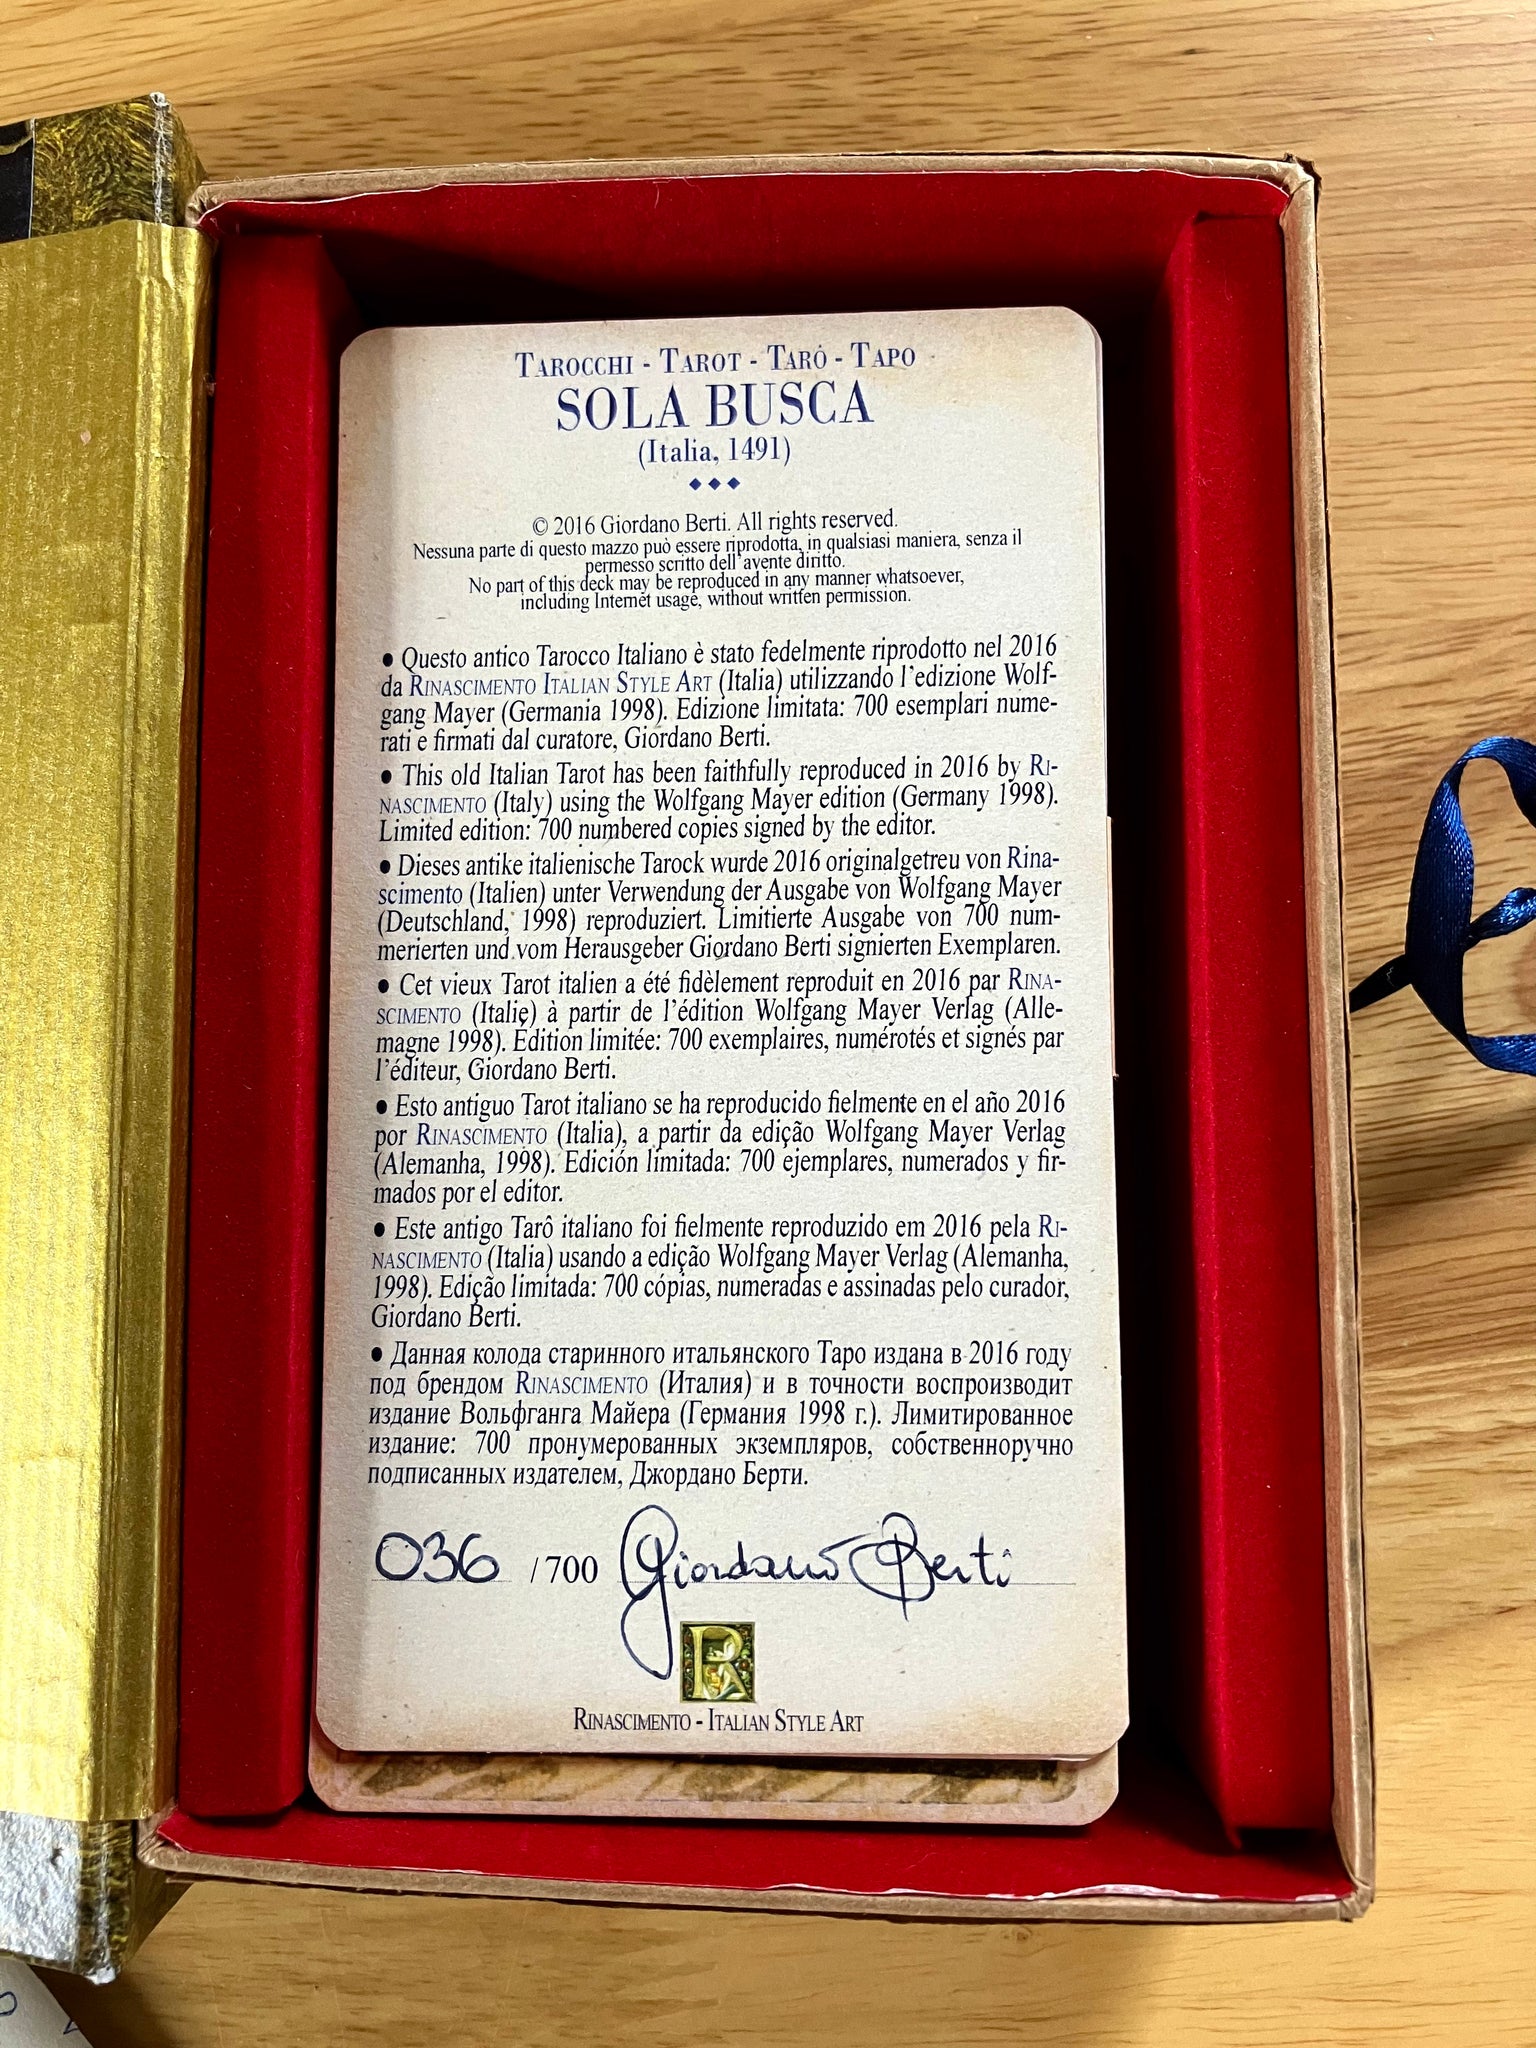 Tarocchi - Tarot - Taró - Таро
SOLA BUSCA
(Italia, 1491)
© 2016 Giordano Berti. All rights reserved.
Nessuna parte di questo mazzo può essere riprodotta, in qualsiasi maniera, senza il
permesso scritto dell'avente diritto.
No part of this deck may be reproduced in any manner whatsoever,
including Internet usage, without written permission.
• Questo antico Tarocco Italiano è stato fedelmente riprodotto nel 2016
da Rinascimento Italian Style Art (Italia) utilizzando l'edizione Wolf-
gang Mayer (Germania 1998). Edizione limitata: 700 esemplari nume-
rati e firmati dal curatore, Giordano Berti.
• This old Italian Tarot has been faithfully reproduced in 2016 by Ri-
nascimento (Italy) using the Wolfgang Mayer edition (Germany 1998).
Limited edition: 700 numbered copies signed by the editor.
• Dieses antike italienische Tarock wurde 2016 originalgetreu von Rina-
scimento (Italien) unter Verwendung der Ausgabe von Wolfgang Mayer
(Deutschland, 1998) reproduziert. Limitierte Ausgabe von 700 num-
merierten und vom Herausgeber Giordano Berti signierten Exemplaren.
• Cet vieux Tarot italien a été fidèlement reproduit en 2016 par Rina-
scimento (Italie) à partir de l'édition Wolfgang Mayer Verlag (Alle-
magne 1998). Edition limitée: 700 exemplaires, numérotés et signés par
l'éditeur, Giordano Berti.
• Esto antiguo Tarot italiano se ha reproducido fielmente en el año 2016
por Rinascimento (Italia), a partir da edição Wolfgang Mayer Verlag
(Alemanha, 1998). Edición limitada: 700 ejemplares, numerados y fir-
mados por el editor.
• Este antigo Tarô italiano foi fielmente reproduzido em 2016 pela Ri-
nascimento (Italia) usando a edição Wolfgang Mayer Verlag (Alemanha,
1998). Edição limitada: 700 cópias, numeradas e assinadas pelo curador,
Giordano Berti.
• Данная колода старинного итальянского Таро издана в 2016 году
под брендом Rinascimento (Италия) и в точности воспроизводит
издание Вольфганга Майера (Германия 1998 г.). Лимитированное
издание: 700 пронумерованных экземпляров, собственноручно
подписанных издателем, Джордано Берти.
036 /700 Giordano Berti
R
Rinascimento - Italian Style Art